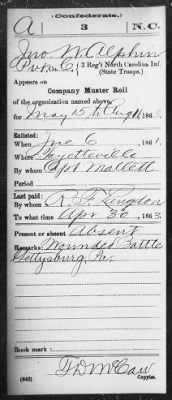 (Confederate.)
A 3 N.C.
Jno W. Alphin
Pvt. Co. C, 3 Reg't North Carolina Inf.
(State Troops.)
Appears on
Company Muster Roll
of the organization named above,
for May 15 to Aug 11, 1863.
Enlisted:
When June 6, 1861.
Where Fayetteville
By whom Cpt. Mallett
Period
Last paid:
By whom R. F. Langdon
To what time Apr 30, 1863.
Present or absent Absent
Remarks: Wounded Battle
Gettysburg, Pa.
Book mark:
T D McCaw
(642) Copyist.